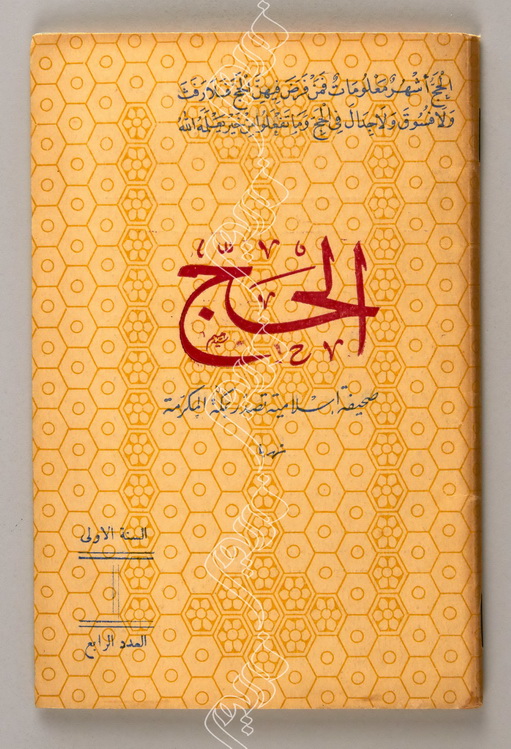 الحج أشهر معلومات فمن فرض فيهن الحج فلا رفث
ولا فسوق ولا جدال في الحج وما تفعلوا من خير يعلمه الله
الحج
صحيفة إسلامية تصدر بمكة المكرمة
شهريا
السنة الاولى
العدد الرابع